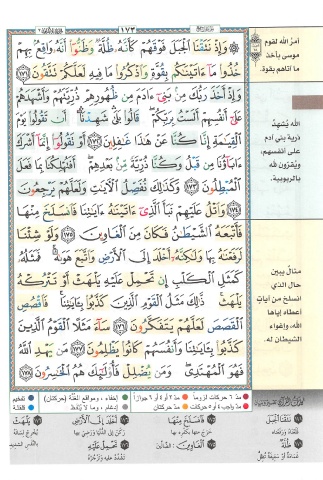 ١٧٣
۞ وَإِذْ نَتَقْنَا ٱلْجَبَلَ فَوْقَهُمْ كَأَنَّهُۥ ظُلَّةٌ وَظَنُّوٓا۟ أَنَّهُۥ وَاقِعٌۢ بِهِمْ
خُذُوا۟ مَآ ءَاتَيْنَٰكُم بِقُوَّةٍ وَٱذْكُرُوا۟ مَا فِيهِ لَعَلَّكُمْ تَتَّقُونَ ١٧١
وَإِذْ أَخَذَ رَبُّكَ مِنۢ بَنِىٓ ءَادَمَ مِن ظُهُورِهِمْ ذُرِّيَّتَهُمْ وَأَشْهَدَهُمْ
عَلَىٰٓ أَنفُسِهِمْ أَلَسْتُ بِرَبِّكُمْ قَالُوا۟ بَلَىٰ شَهِدْنَآ أَن تَقُولُوا۟ يَوْمَ
ٱلْقِيَٰمَةِ إِنَّا كُنَّا عَنْ هَٰذَا غَٰفِلِينَ ١٧٢ أَوْ تَقُولُوٓا۟ إِنَّمَآ أَشْرَكَ
ءَابَآؤُنَا مِن قَبْلُ وَكُنَّا ذُرِّيَّةً مِّنۢ بَعْدِهِمْ أَفَتُهْلِكُنَا بِمَا فَعَلَ
ٱلْمُبْطِلُونَ ١٧٣ وَكَذَٰلِكَ نُفَصِّلُ ٱلْءَايَٰتِ وَلَعَلَّهُمْ يَرْجِعُونَ
١٧٤ وَٱتْلُ عَلَيْهِمْ نَبَأَ ٱلَّذِىٓ ءَاتَيْنَٰهُ ءَايَٰتِنَا فَٱنسَلَخَ مِنْهَا
فَأَتْبَعَهُ ٱلشَّيْطَٰنُ فَكَانَ مِنَ ٱلْغَاوِينَ ١٧٥ وَلَوْ شِئْنَا
لَرَفَعْنَٰهُ بِهَا وَلَٰكِنَّهُۥٓ أَخْلَدَ إِلَى ٱلْأَرْضِ وَٱتَّبَعَ هَوَىٰهُ فَمَثَلُهُۥ
كَمَثَلِ ٱلْكَلْبِ إِن تَحْمِلْ عَلَيْهِ يَلْهَثْ أَوْ تَتْرُكْهُ
يَلْهَث ذَّٰلِكَ مَثَلُ ٱلْقَوْمِ ٱلَّذِينَ كَذَّبُوا۟ بِـَٔايَٰتِنَا فَٱقْصُصِ
ٱلْقَصَصَ لَعَلَّهُمْ يَتَفَكَّرُونَ ١٧٦ سَآءَ مَثَلًا ٱلْقَوْمُ ٱلَّذِينَ
كَذَّبُوا۟ بِـَٔايَٰتِنَا وَأَنفُسَهُمْ كَانُوا۟ يَظْلِمُونَ ١٧٧ مَن يَهْدِ ٱللَّهُ
فَهُوَ ٱلْمُهْتَدِى وَمَن يُضْلِلْ فَأُو۟لَٰٓئِكَ هُمُ ٱلْخَٰسِرُونَ ١٧٨
أمرُ الله لقوم
موسى بأخذ
ما آتاهم بقوة.
الله يُشهِدُ
ذرية بني آدم
على أنفسهم،
ويُقرّون لله
بالربوبية.
مثالٌ يبين
حال الذي
انسلخ من آياتٍ
أعطاه إياها
الله، وإغواء
الشيطان له.
مدّ ٦ حركات لزوماً
مدّ ٢ أو ٤ أو ٦ جوازاً
إخفاء، ومواقع الغُنَّة (حركتان)
تفخيم
مدّ واجب ٤ أو ٥ حركات
مدّ حركتان
إدغام، وما لا يُلفَظ
قلقلة
نَتَقْنَا ٱلْجَبَلَ
ظُلَّةٌ
فَٱنسَلَخَ مِنْهَا
ٱلْغَاوِينَ
أَخْلَدَ إِلَى ٱلْأَرْضِ
تَحْمِلْ عَلَيْهِ
يَلْهَثْ